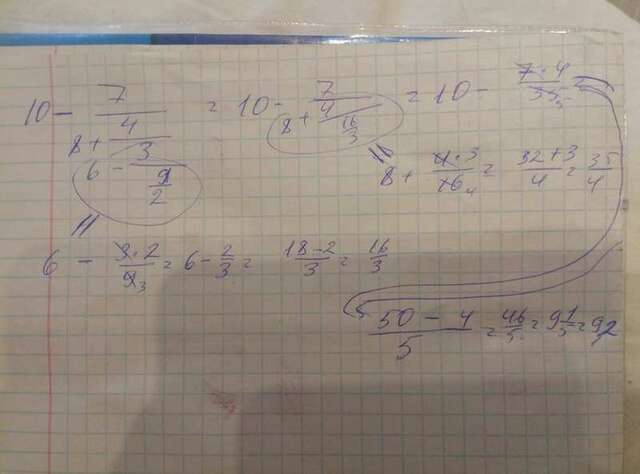 10 - 7/(8 + 4/(6 - 3/(9/2))) = 10 - 7/(8 + 4/(16/3)) = 10 - (7·4)/35 5 =
8 + (4·3)/16 4 = (32+3)/4 = 35/4
6 - (3·2)/9 3 = 6 - 2/3 = (18-2)/3 = 16/3
(50 - 4)/5 = 46/5 = 9 1/5 = 9,2